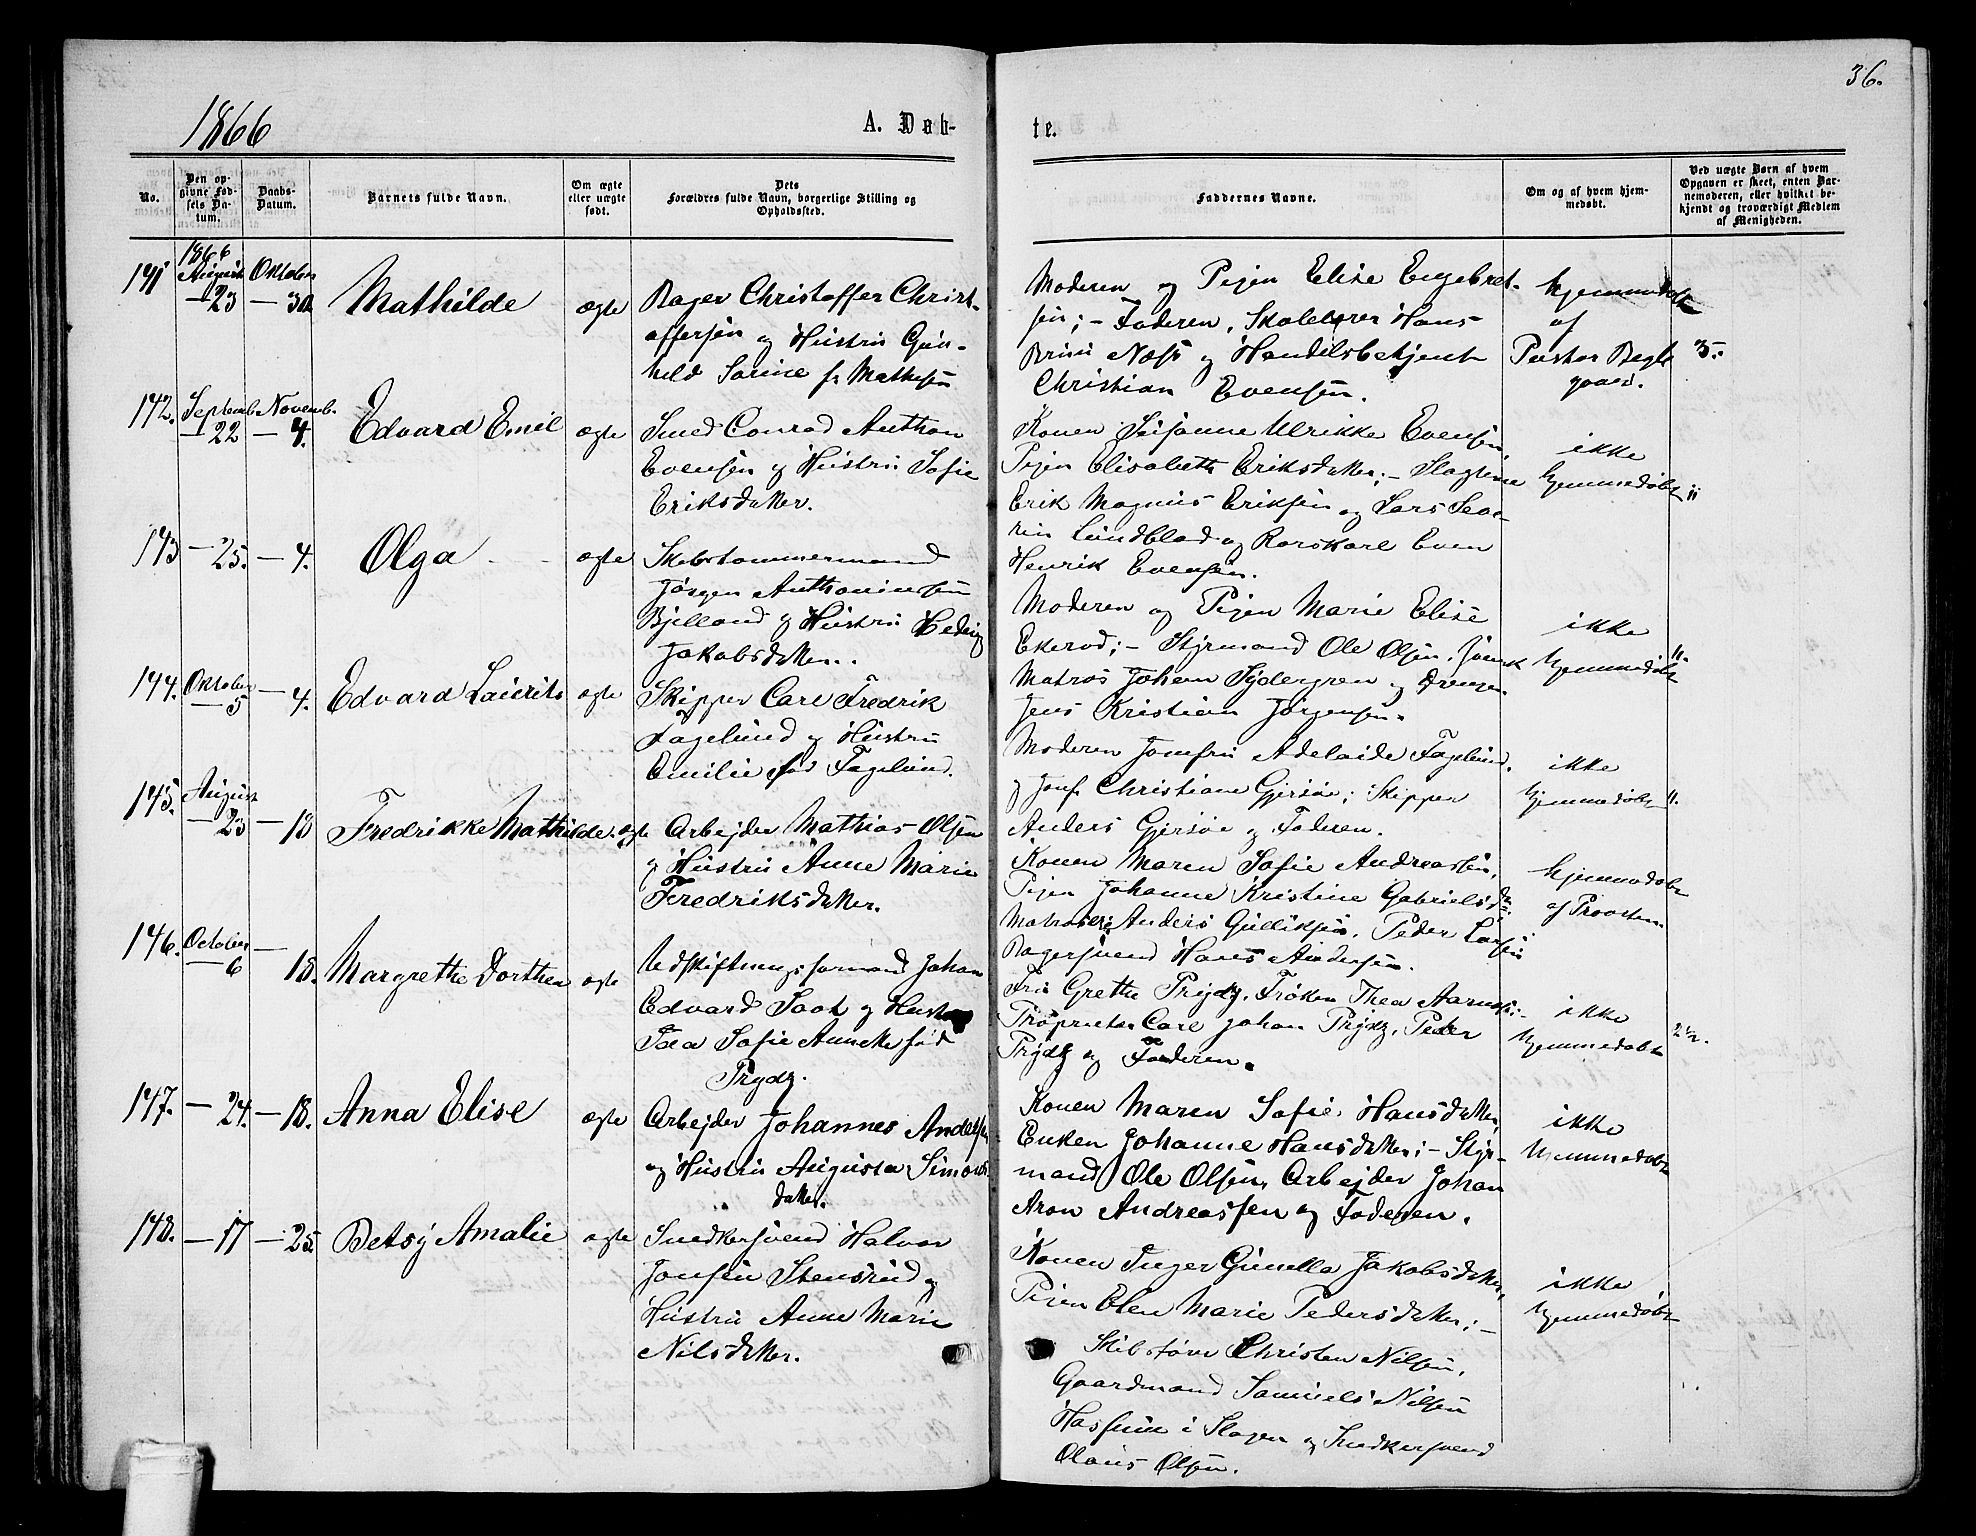 36.
1866
A. Døb-
te.
No.
Den op-
givne Fød-
sels Da-
tum.
Daabs-
Datum.
Barnets fulde Navn.
Om ægte
eller uægte
født.
Dets
Forældres fulde Navn, borgerlige Stilling og
Opholdssted.
Faddernes Navne.
Om og af hvem hjem-
medøbt.
Ved uægte Børn af hvem
Opgaven er skeet, enten Bar-
nemoderen, eller hvilket be-
kjendt og troværdigt Medlem
af Menigheden.
141
1866
August
23
Oktober
— 30
Mathilde
ægte
Bager Christoffer Christ-
offersen og Hustru Gun-
hild Sorine f. Mathisen
Moderen og Pigen Elise Engebret-
sen; — Faderen, Skolelærer Hans
Bruu Næss og Handelsbetjent
Christian Evensen.
hjemmedøbt
af
Pastor Bugl
gaard.
3.
142.
Septemb.
22
Novemb.
— 4.
Edvard Emil
ægte
Smed Conrad Anthon
Evensen og Hustru Sofie
Eriksdatter.
Konen Susanne Ulrikke Evensen,
Pigen Elisabeth Eriksdatter; — Slagterne
Erik Magnus Eriksen og Lars Seve-
rin Lundblad og Rorskarl Even
Henrik Evensen.
ikke
hjemmedøbt
"
143
— 25.
— 4.
Olga
ægte
Skibstømmermand
Jørgen Anthoniussen
Bjelland og Hustru Hedvig
Jakobsdatter.
Moderen og Pigen Marie Elise
Ekerod; — Styrmand Ole Olsen,
Matros Johan Sydergren og Drengen
Jens Kristian Jørgensen.
ikke
hjemmedøbt
"
144.
Oktober
— 5
— 4.
Edvard Laurits
ægte
Skipper Carl Fredrik
Fagelund og Hustru
Emilie født Fagelund.
Moderen Jomfru Adelaide Fagelund,
og Jomf. Christiane Gjersøe; Skipper
Anders Gjersøe og Faderen.
ikke
hjemmedøbt
".
145.
August
— 23
— 18
Fredrikke Mathilde.
ægte
Arbejder Mathias Olsen
og Hustru Anne Marie
Fredriksdatter.
Konen Maren Sofie Andreassen,
Pigen Johanne Kristine Gabrielsd
Matros Anders Gulliksen, Peder Larsen
Bagersvend Hans Andersen.
hjemmedøbt
af Provsten.
146.
October
— 6
— 18.
Margrethe Dorthea
ægte
Udskiftningsformand Johan
Edvard Saot og Hustru
Thea Sofie Annette født
Prydz.
Fru Grethe Prydz, Frøken Thea
Proprietær Carl Johan Prydz, Peder
Prydz og Faderen.
ikke
hjemmedøbt
2 1/2.
147.
— 24.
— 18.
Anna Elise
ægte
Arbejder Johannes
og Hustru Augusta Simons
datter.
Konen Maren Sofie Hansdatter,
Enken Johanne Hansdatter; — Styr-
mand Ole Olsen, Arbejder Johan
Aron Andreassen og Faderen.
ikke
hjemmedøbt
148.
— 17
— 25.
Betsy Amalie
ægte
Snedkersvend Halvor
Jonsen Stensrud og
Hustru Anne Marie
Nilsdatter.
Konen Inger Gunella Jakobsdatter,
Pigen Elen Marie Pedersdatter; —
Skibsfører Christen Nilsen,
Gaardmand Samuels Nilsen
i Slagen og Snedkersvend
Olaus Olsen.
ikke
hjemmedøbt